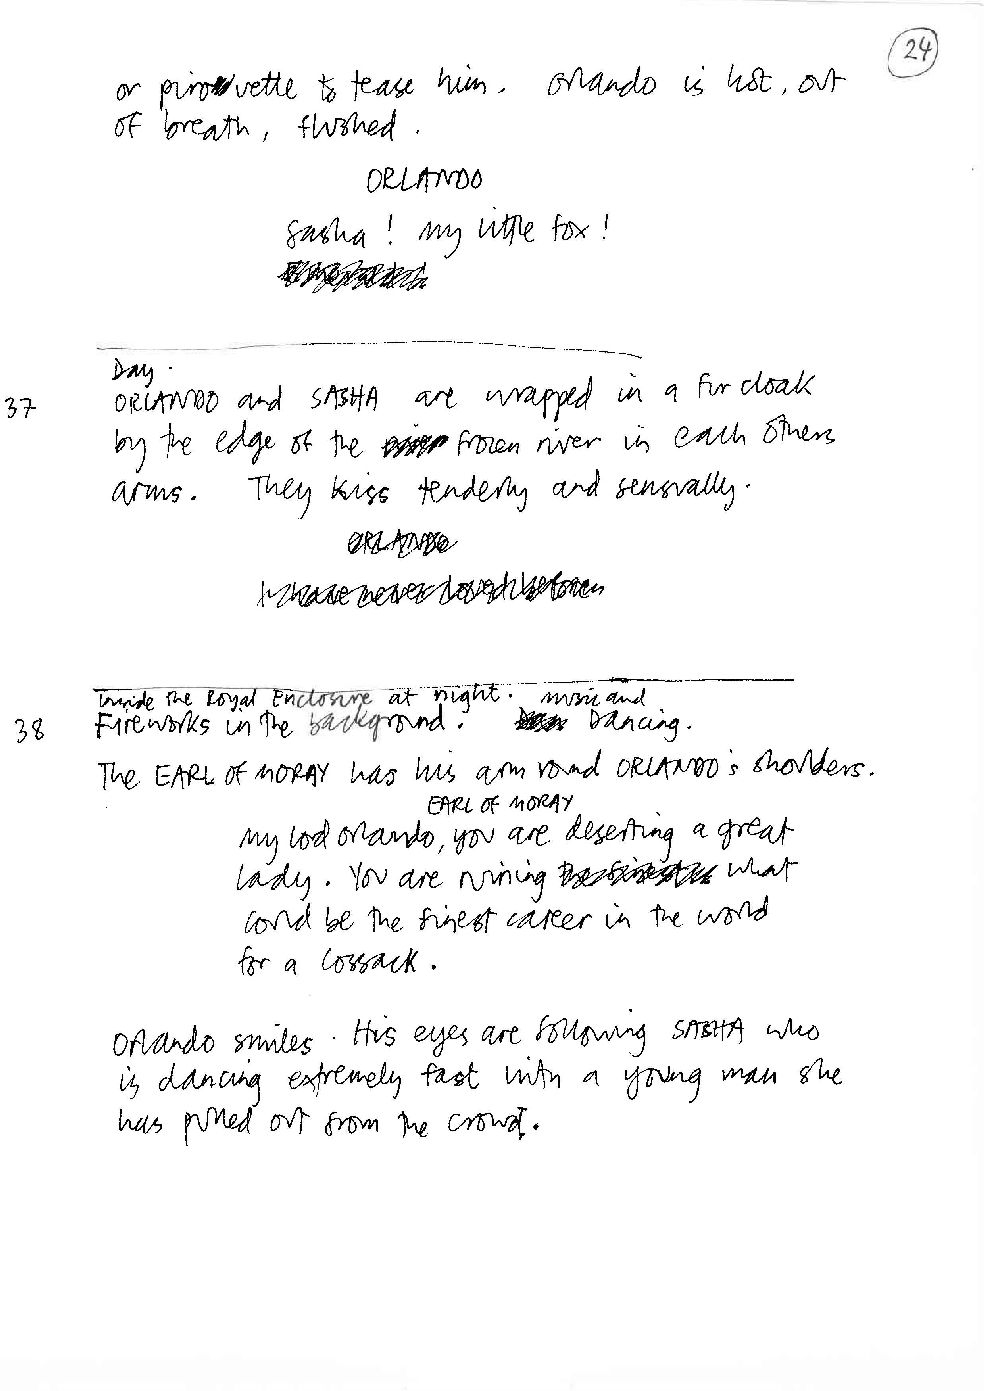 24
or pirouette to tease him. Orlando is hot, out
of breath, flushed.
ORLANDO
Sasha! My little fox!
Day.
37 ORLANDO and SASHA are wrapped in a fur cloak
by the edge of the frozen river in each others
arms. They kiss tenderly and sensually.
ORLANDO
I have never loved before
Inside the Royal Enclosure at night. Music and
38 Fireworks in the background. Dancing.
The EARL OF MORAY has his arm round ORLANDO's shoulders.
EARL OF MORAY
My Lord Orlando, you are deserting a great
lady. You are ruining what
could be the finest career in the world
for a Cossack.
Orlando smiles. His eyes are following SASHA who
is dancing extremely fast with a young man she
has pulled out from the crowd.